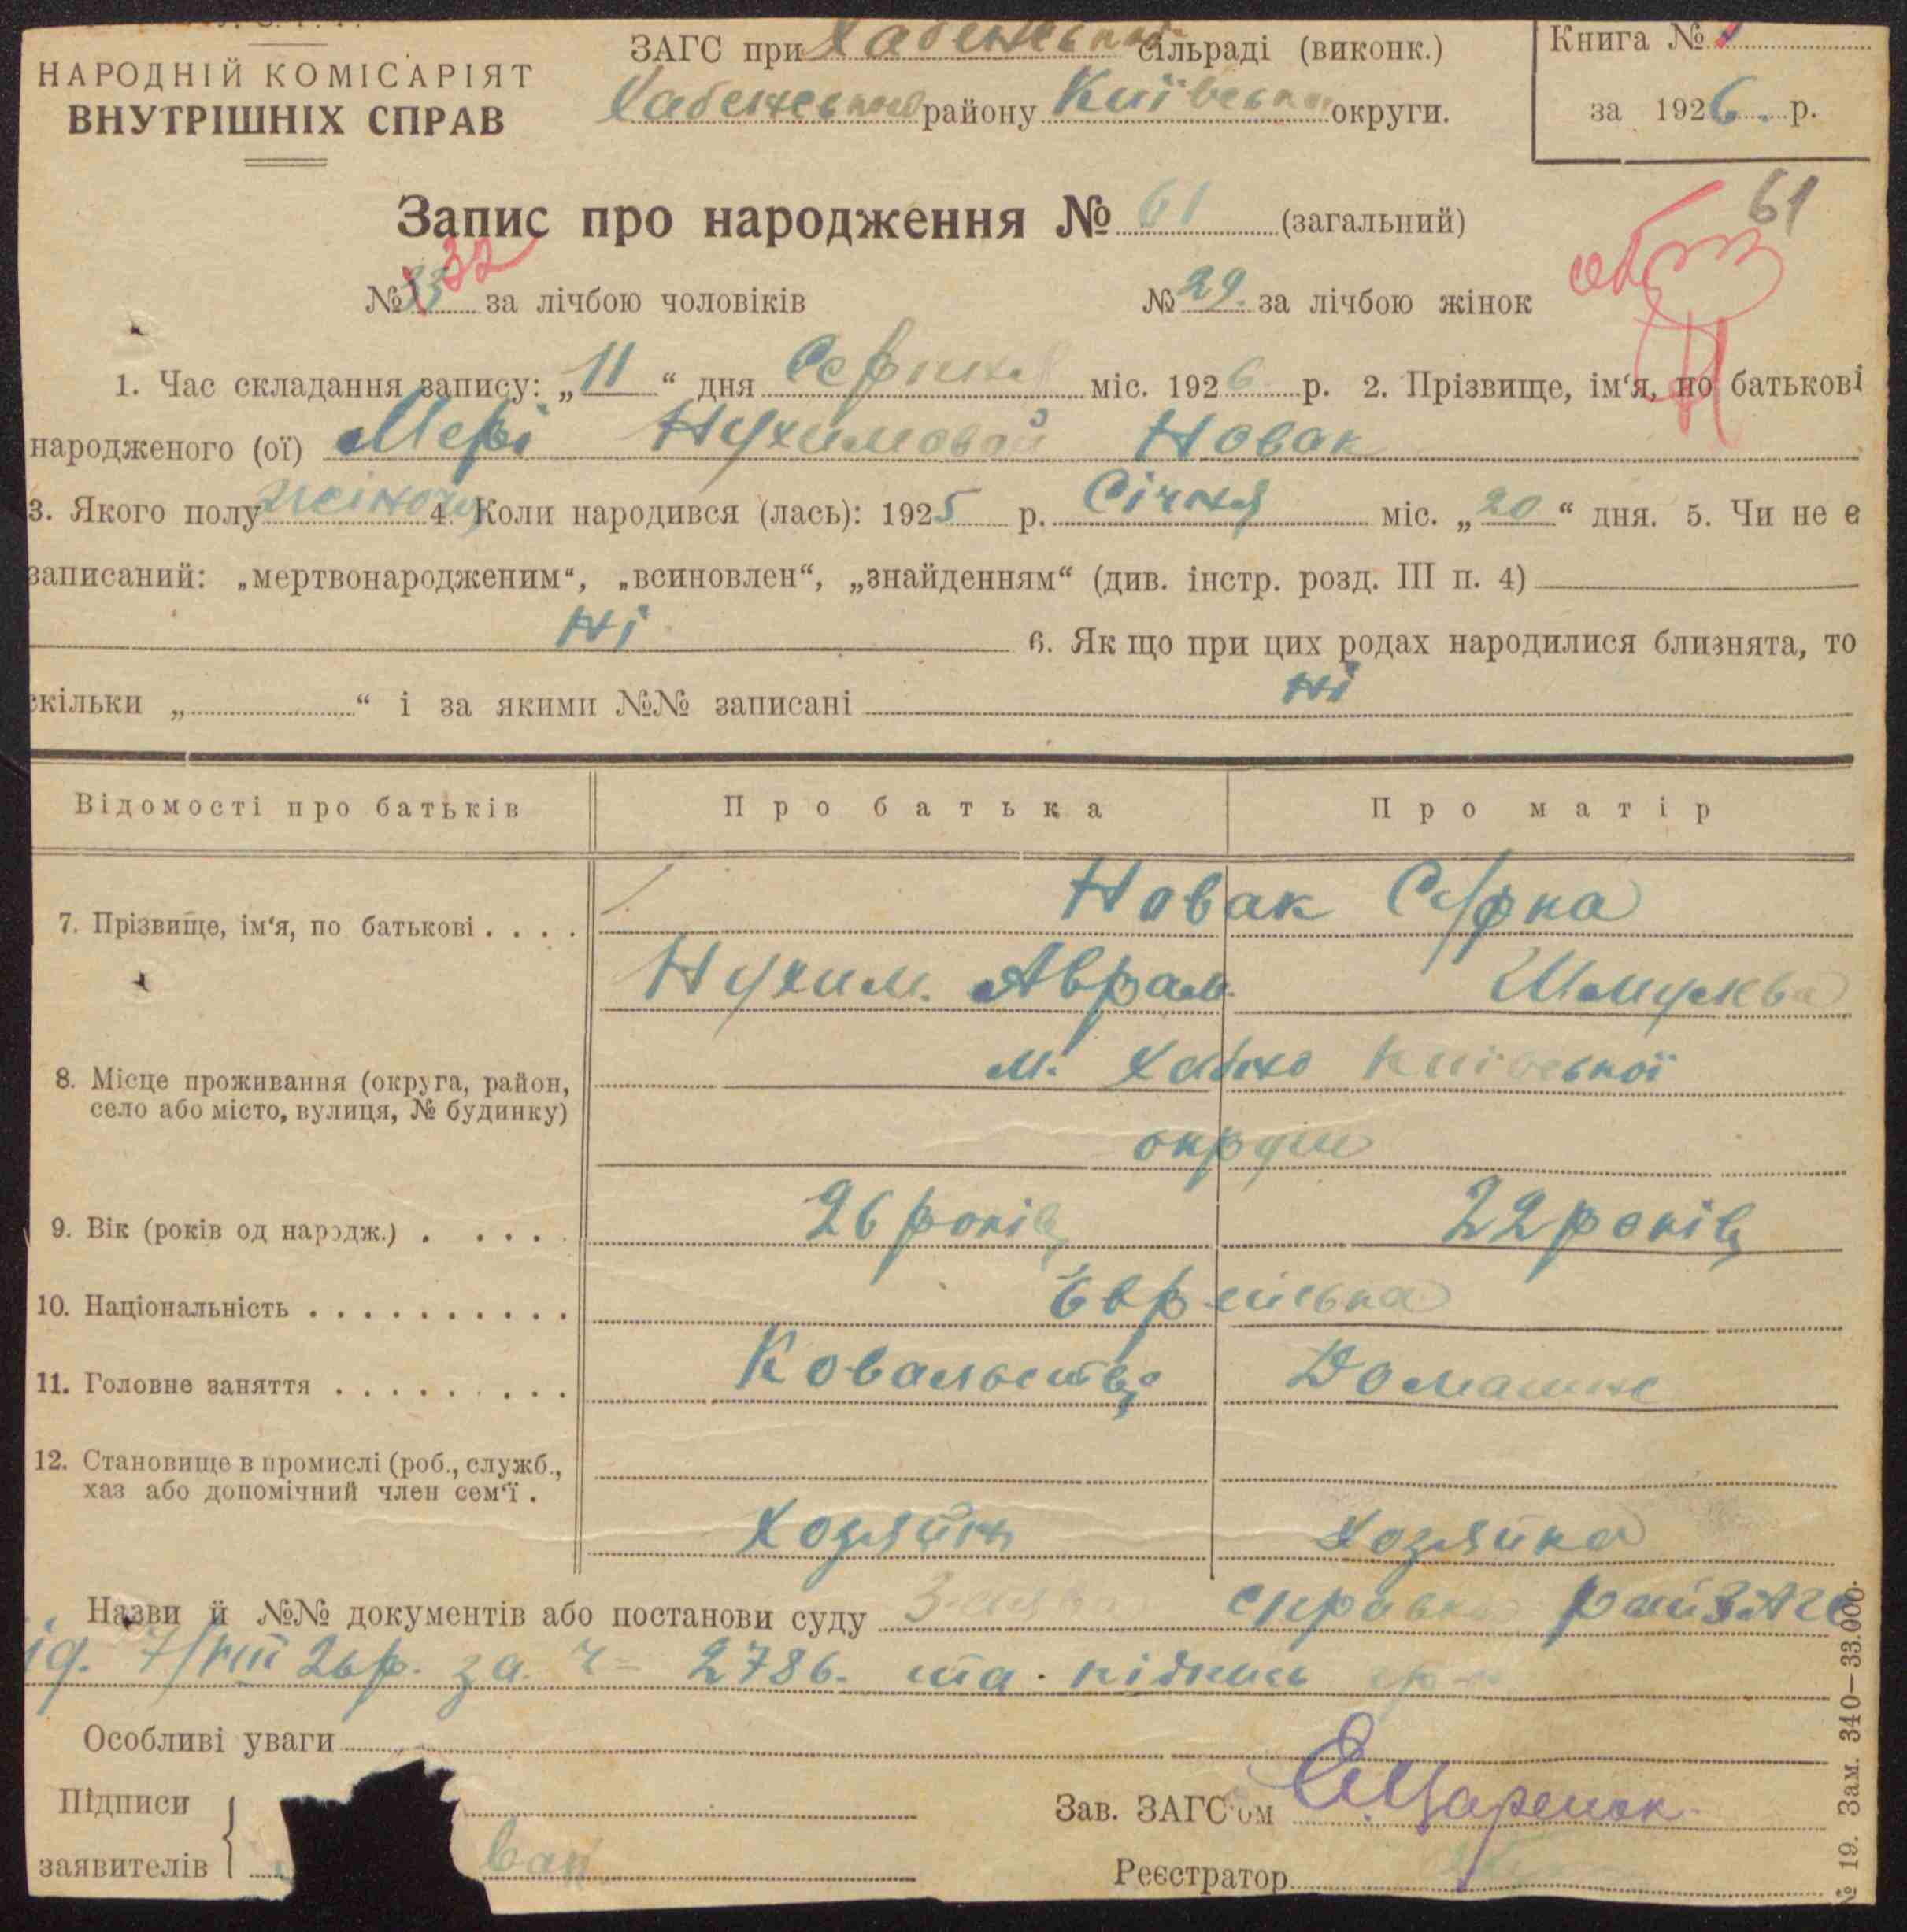 НАРОДНІЙ КОМІСАРІЯТ
ВНУТРІШНІХ СПРАВ
ЗАГС при Хабенській сільраді (виконк.)
Хабенського району Київської округи.
Книга №
за 1926 . р.
Запис про народження № 61 (загальний)
61
32
№ 33 за лічбою чоловіків № 29. за лічбою жінок
1. Час складання запису: „ 11 “ дня Серпня міс. 1926 р. 2. Прізвище, ім‘я, по батькові
народженого (ої) Мері Нухимовой Новак
3. Якого полу жіночу 4. Коли народився (лась): 1925 р. Січня міс. „ 20 “ дня. 5. Чи не є
записаний: „мертвонародженим“, „всиновлен“, „знайденням“ (див. інстр. розд. III п. 4)
Ні 6. Як що при цих родах народилися близнята, то
скільки „ “ і за якими №№ записані Ні
Відомості про батьків Про батька Про матір
7. Прізвище, ім‘я, по батькові . . . . Новак Суфка
Нухим. Аврам. Шмулева
8. Місце проживання (округа, район,
село або місто, вулиця, № будинку)
м. Хабно Київської
округи
9. Вік (років од народж.) . . . . . 26 років 22 років
10. Національність . . . . . . . . . . Єврейська
11. Головне заняття . . . . . . . . . Ковальство Домашнє
12. Становище в промислі (роб., служб.,
хаз або допомічний член сем‘ї .
Хозяїн Хозяйка
Назви й №№ документів або постанови суду Заява справка райЗАГС
від. 7/VIII 26 р. за ч= 2786. та. підпис
Особливі уваги
Підписи
заявителів
вак
Зав. ЗАГС‘ом
Реєстратор
№ 19. Зам. 340—33.000.